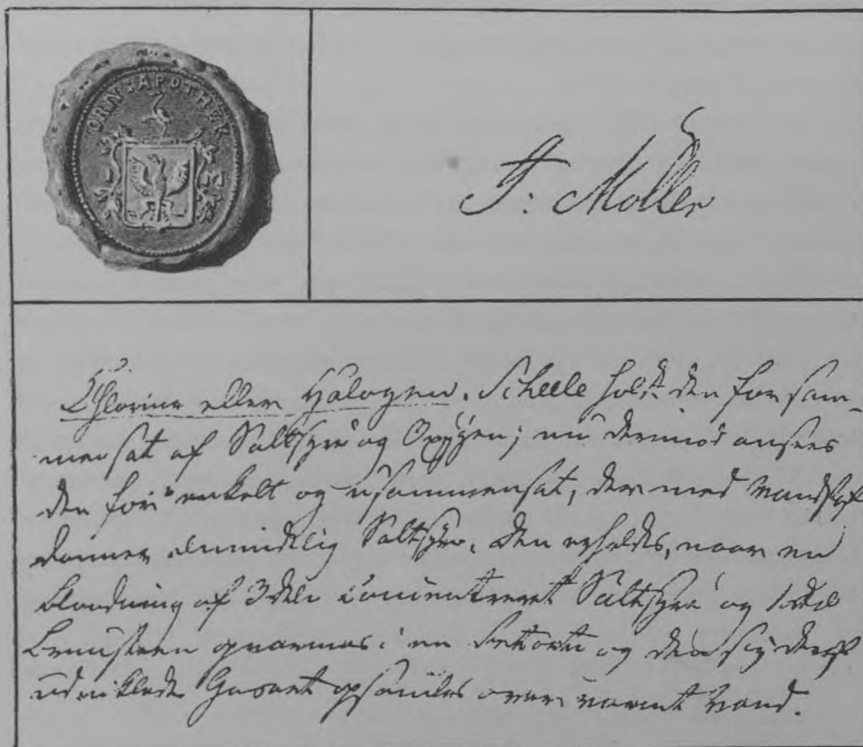 ØRNS APOTHEK
F: Møller
Chlorine eller Halogen. Scheele holdt den for sam-
mensat af Saltsyre og Oxygen; nu derimod ansees
den for enkelt og usammensat, der med Vandstof
danner almindelig Saltsyre. Den erholdes, naar en
Blanding af 3 dele concentreret Saltsyre og 1 deel
Bruunsteen opvarmes i en Retorte og den sig deraf
udviklede Gasart opsamles over varmt Vand.